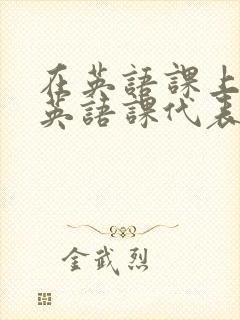 在英語課上
英語課代表
金武烈